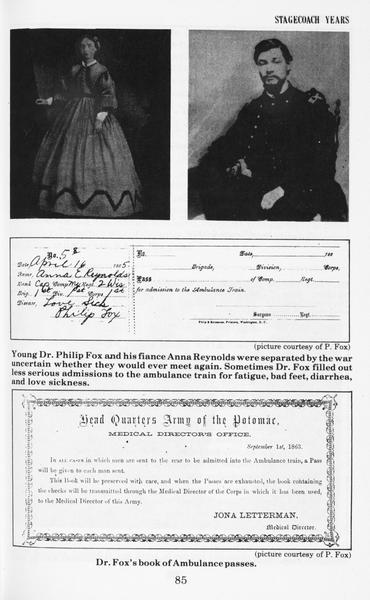 STAGECOACH YEARS
No. 58
Date, April 16 1865
Name, Anna E. Reynolds
Rank Comp. Regt. 2 Wis.
Brig. 1st Div. 1st Corps 1st
Disease, Love Sick
Philip Fox
No. Date, 186
Brigade, Division, Corps,
Pass of Comp. Regt.
for admission to the Ambulance Train.
Surgeon Regt.
Philp & Solomons, Printers, Washington, D. C.
(picture courtesy of P. Fox)
Young Dr. Philip Fox and his fiance Anna Reynolds were separated by the war
uncertain whether they would ever meet again. Sometimes Dr. Fox filled out
less serious admissions to the ambulance train for fatigue, bad feet, diarrhea,
and love sickness.
Head Quarters Army of the Potomac,
MEDICAL DIRECTOR'S OFFICE,
September 1st, 1863.
IN ALL CASES in which men are sent to the rear to be admitted into the Ambulance train, a Pass
will be given to each man sent.
This Book will be preserved with care, and when the Passes are exhausted, the book containing
the checks will be transmitted through the Medical Director of the Corps in which it has been used,
to the Medical Director of this Army.
JONA LETTERMAN,
Medical Director.
(picture courtesy of P. Fox)
Dr. Fox's book of Ambulance passes.
85